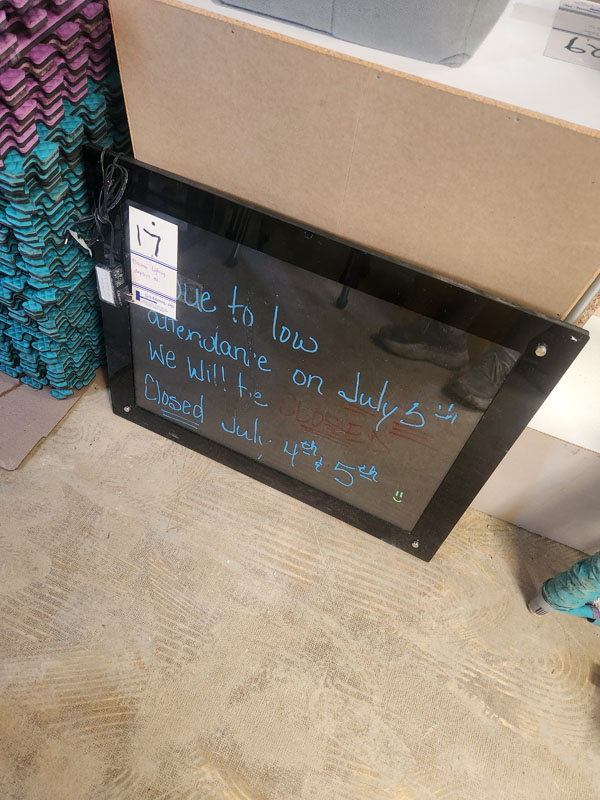 17
Due to low
attendance on July 5th
We will be CLOSED
Closed July 4th & 5th
29